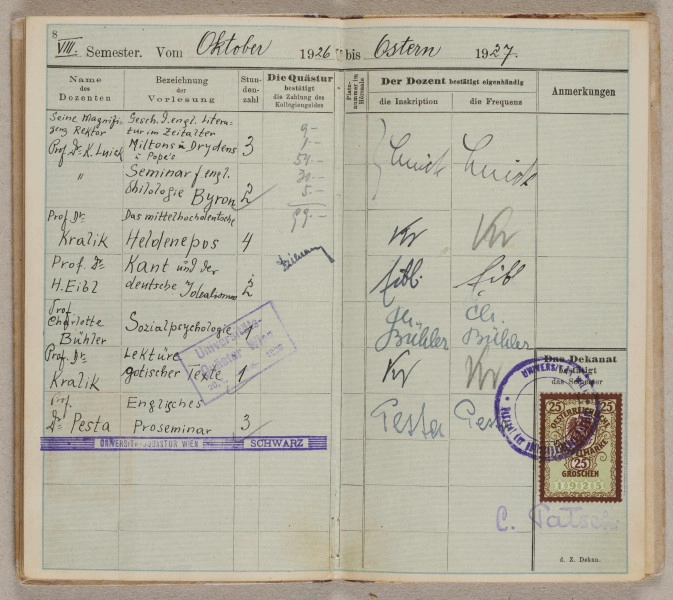 8
VIII. Semester. Vom Oktober 1926 bis Ostern 1927.
Name des Dozenten
Bezeichnung der Vorlesung
Stundenzahl
Die Quästur bestätigt die Zahlung des Kollegiengeldes
Platznummer im Hörsale
Der Dozent bestätigt eigenhändig
die Inskription
die Frequenz
Anmerkungen
Seine Magnifi- Gesch. d. engl. Litera-
zenz Rektor tur im Zeitalter
Prof. Dr. K. Luick Miltons u Drydens 3
u Pope's
Luick Luick
" Seminar f. engl.
philologie Byron 2
9-
1.-
54.-
30.-
5.-
99.-
Prof. Dr. Das mittelhochdeutsche
Kralik Heldenepos 4 Kr Kr
Prof. Dr. Kant und der
H. Eibl deutsche Idealismus 2 Eibl. Eibl
Prof.
Charlotte Sozialpsychologie 1 Ch. Ch.
Bühler Bühler Bühler
Prof. Dr. Lektüre
Kralik gotischer Texte 1 Kr Kr
Prof. Englisches
Dr. Pesta Proseminar 3 Pesta Pesta
Universitäts-
Quästur Wien
UNIVERSITÄTSQUÄSTUR WIEN SCHWARZ
Das Dekanat
bestätigt
das Semester
UNIVERSITÄT
25 25
ÖSTERREICHISCHE
STEMPELMARKE
25
GROSCHEN
1925
C. Patsch
d. Z. Dekan.